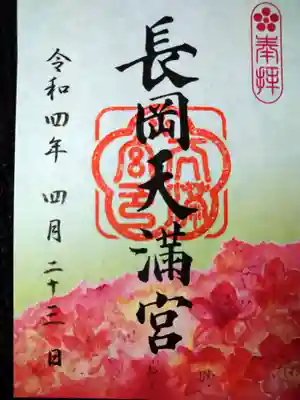 奉拝
長岡天満宮
令和四年 四月 二十三日